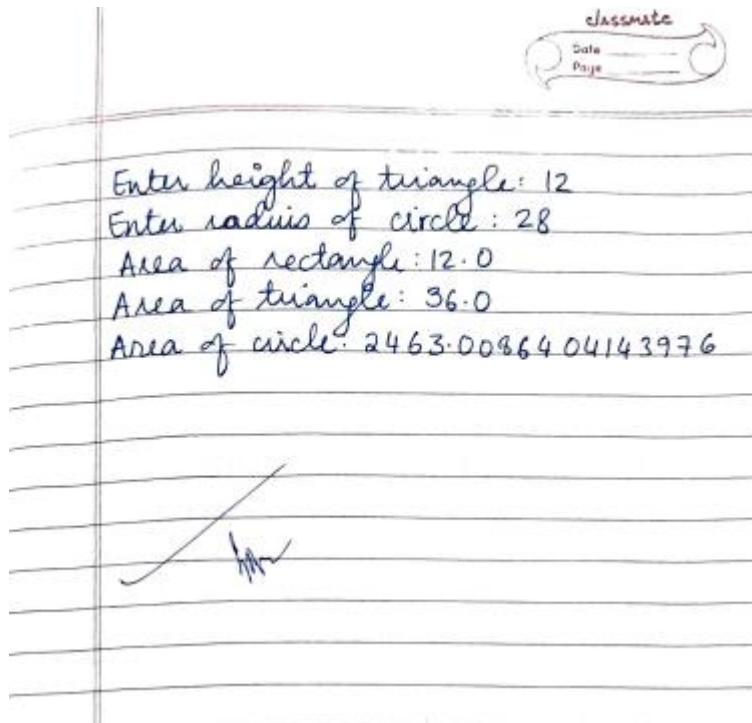 classmate
Date
Page
Enter height of triangle: 12
Enter radius of circle: 28
Area of rectangle: 12.0
Area of triangle: 36.0
Area of circle: 2463.0086404143976